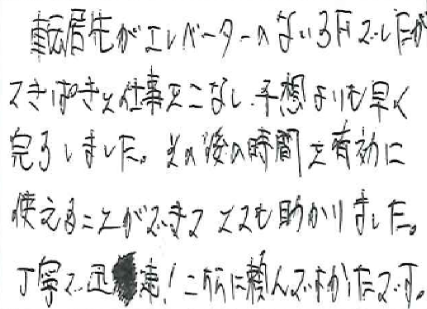 転居先がエレベーターのない3Fでしたが
てきぱきと仕事をこなし、予想よりも早く
完了しました。その後の時間を有効に
使えることができてとても助かりました。
丁寧で迅速！ に頼んでよかったです。